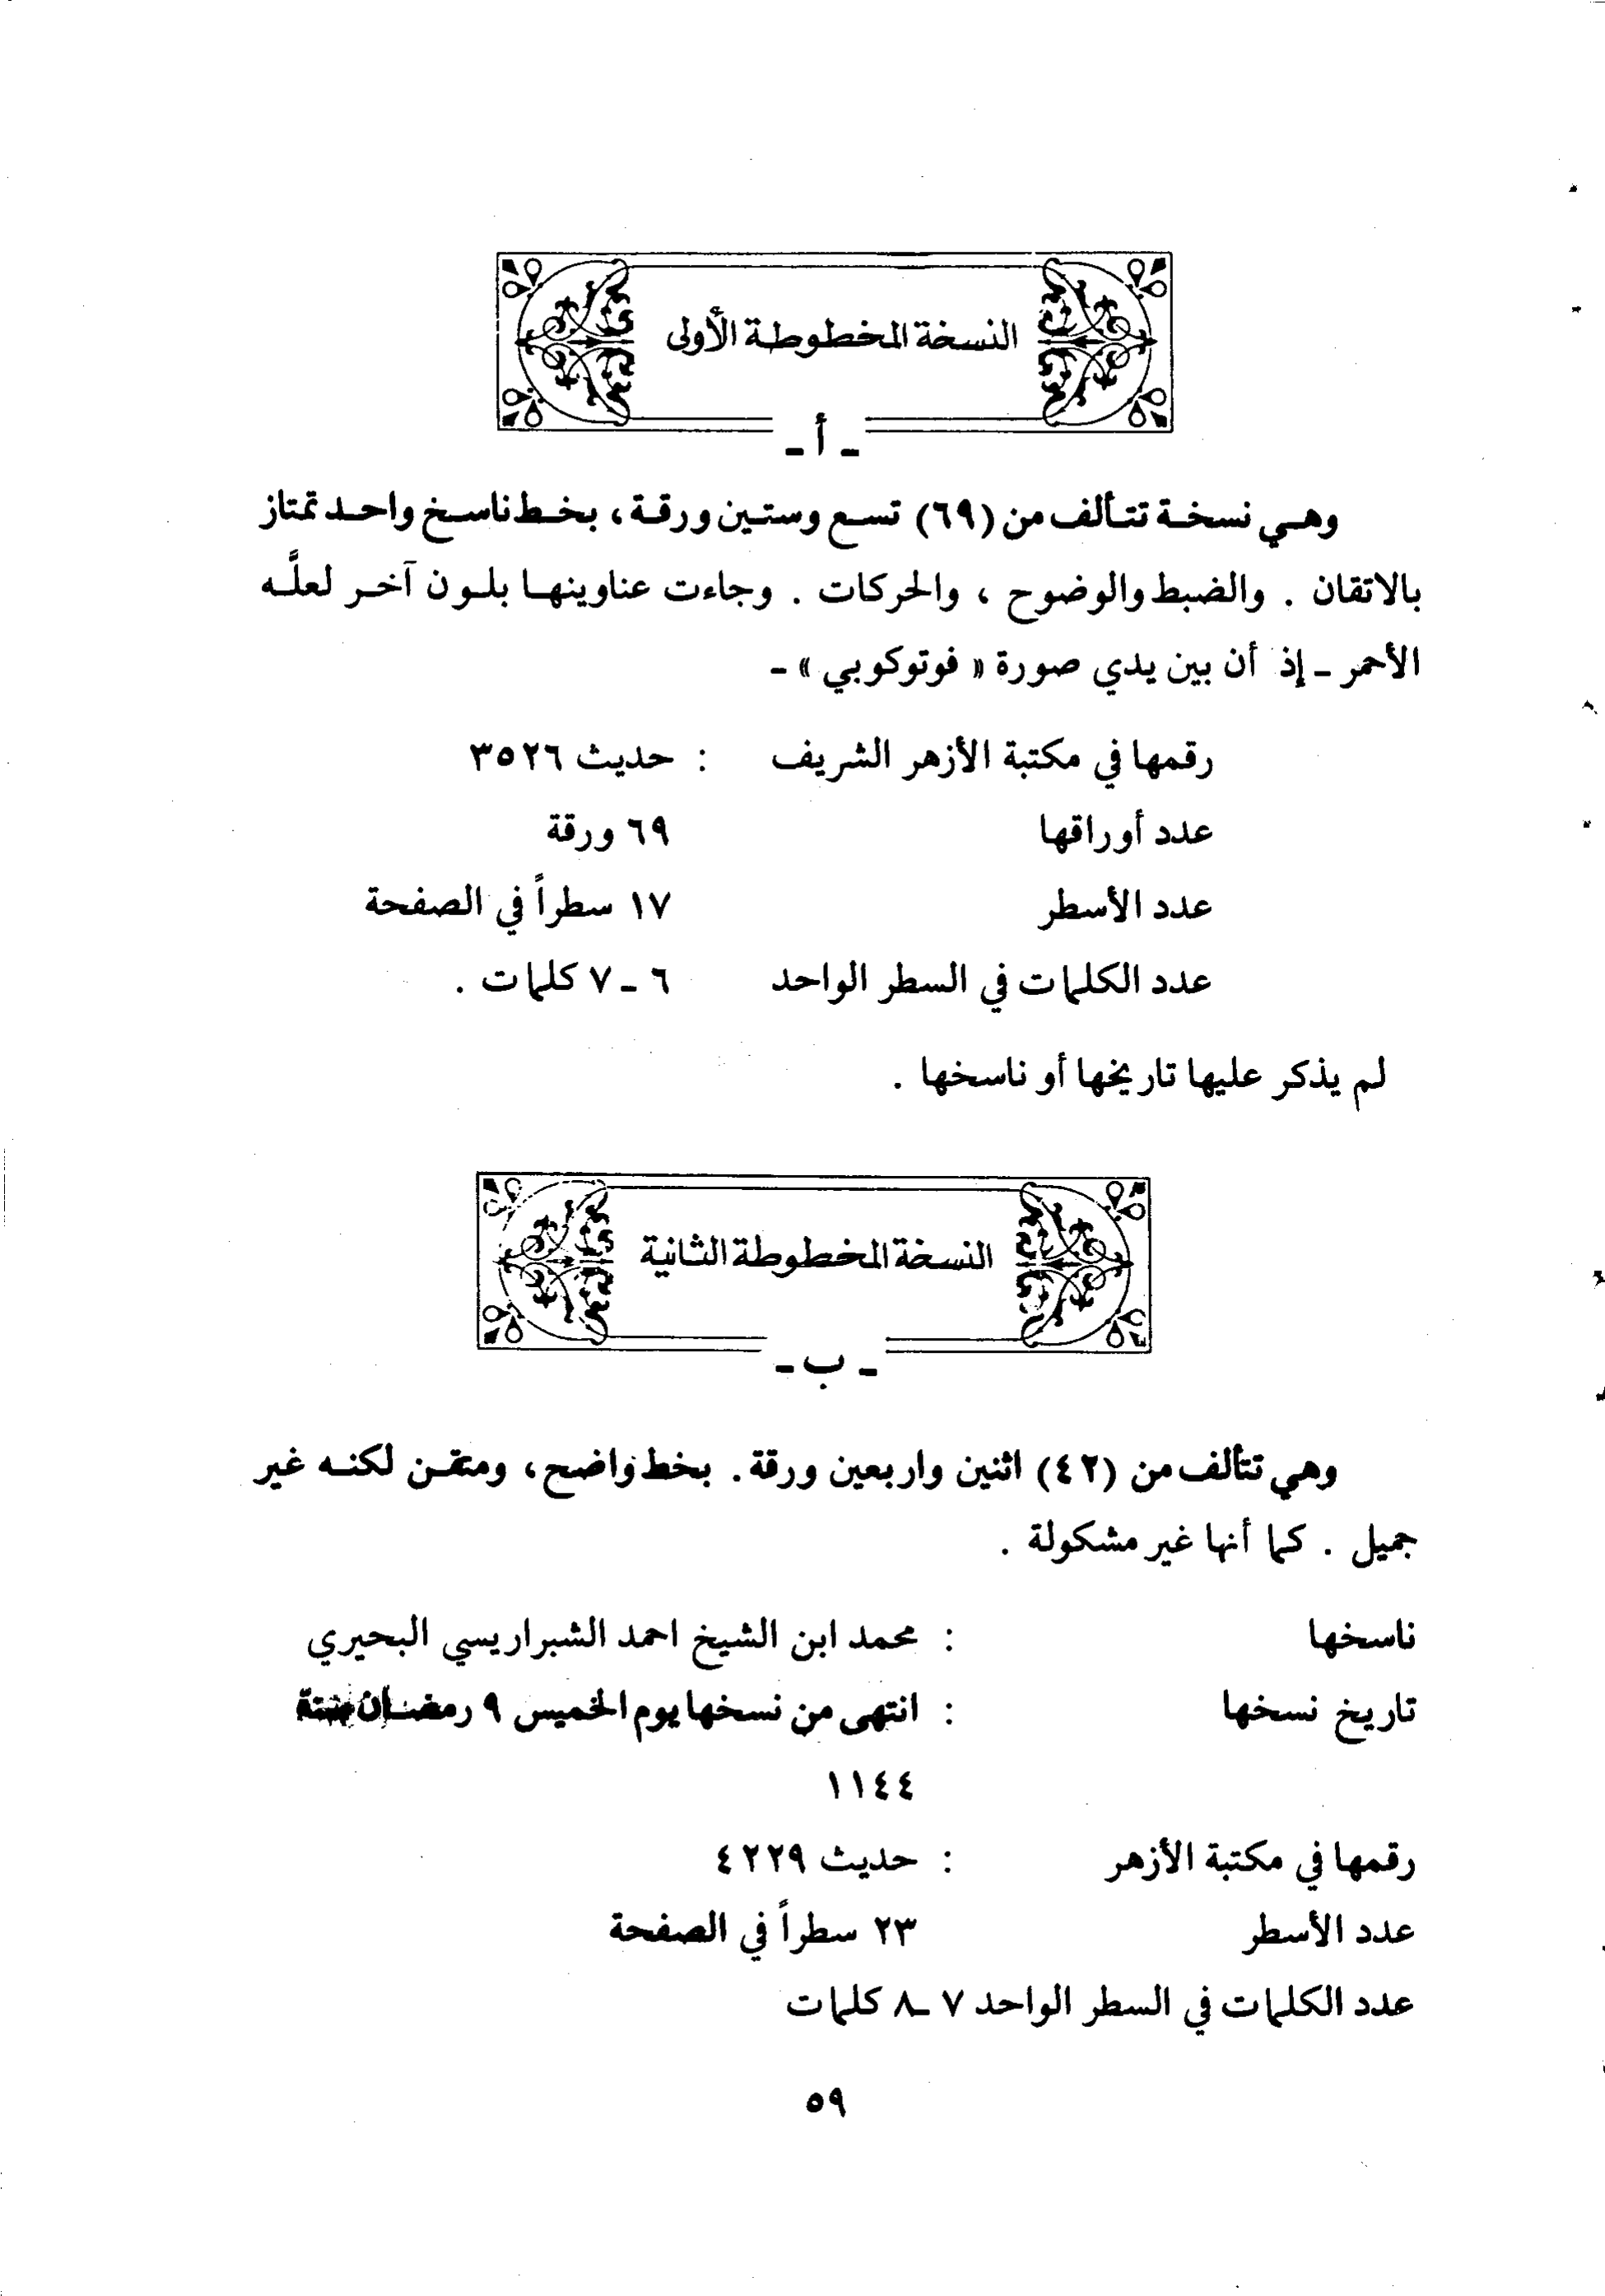 النسخة المخطوطة الأولى
- أ -
وهي نسخة تتألف من (٦٩) تسع وستين ورقة، بخط ناسخ واحد تمتاز
بالاتقان . والضبط والوضوح ، والحركات . وجاءت عناوينها بلون آخر لعلَّه
الأحمر - إذ أن بين يدي صورة « فوتوكوبي » -
رقمها في مكتبة الأزهر الشريف : حديث ٣٥٢٦
عدد أوراقها ٦٩ ورقة
عدد الأسطر ١٧ سطراً في الصفحة
عدد الكلمات في السطر الواحد ٦ - ٧ كلمات .
لم يذكر عليها تاريخها أو ناسخها .
النسخة المخطوطة الثانية
- ب -
وهي تتألف من (٤٢) اثنين واربعين ورقة . بخط واضح، ومتقن لكنه غير
جميل . كما أنها غير مشكولة .
ناسخها : محمد ابن الشيخ احمد الشبراريسي البحيري
تاريخ نسخها : انتهى من نسخها يوم الخميس ٩ رمضان سنة
١١٤٤
رقمها في مكتبة الأزهر : حديث ٤٢٢٩
عدد الأسطر ٢٣ سطراً في الصفحة
عدد الكلمات في السطر الواحد ٧ - ٨ كلمات
٥٩